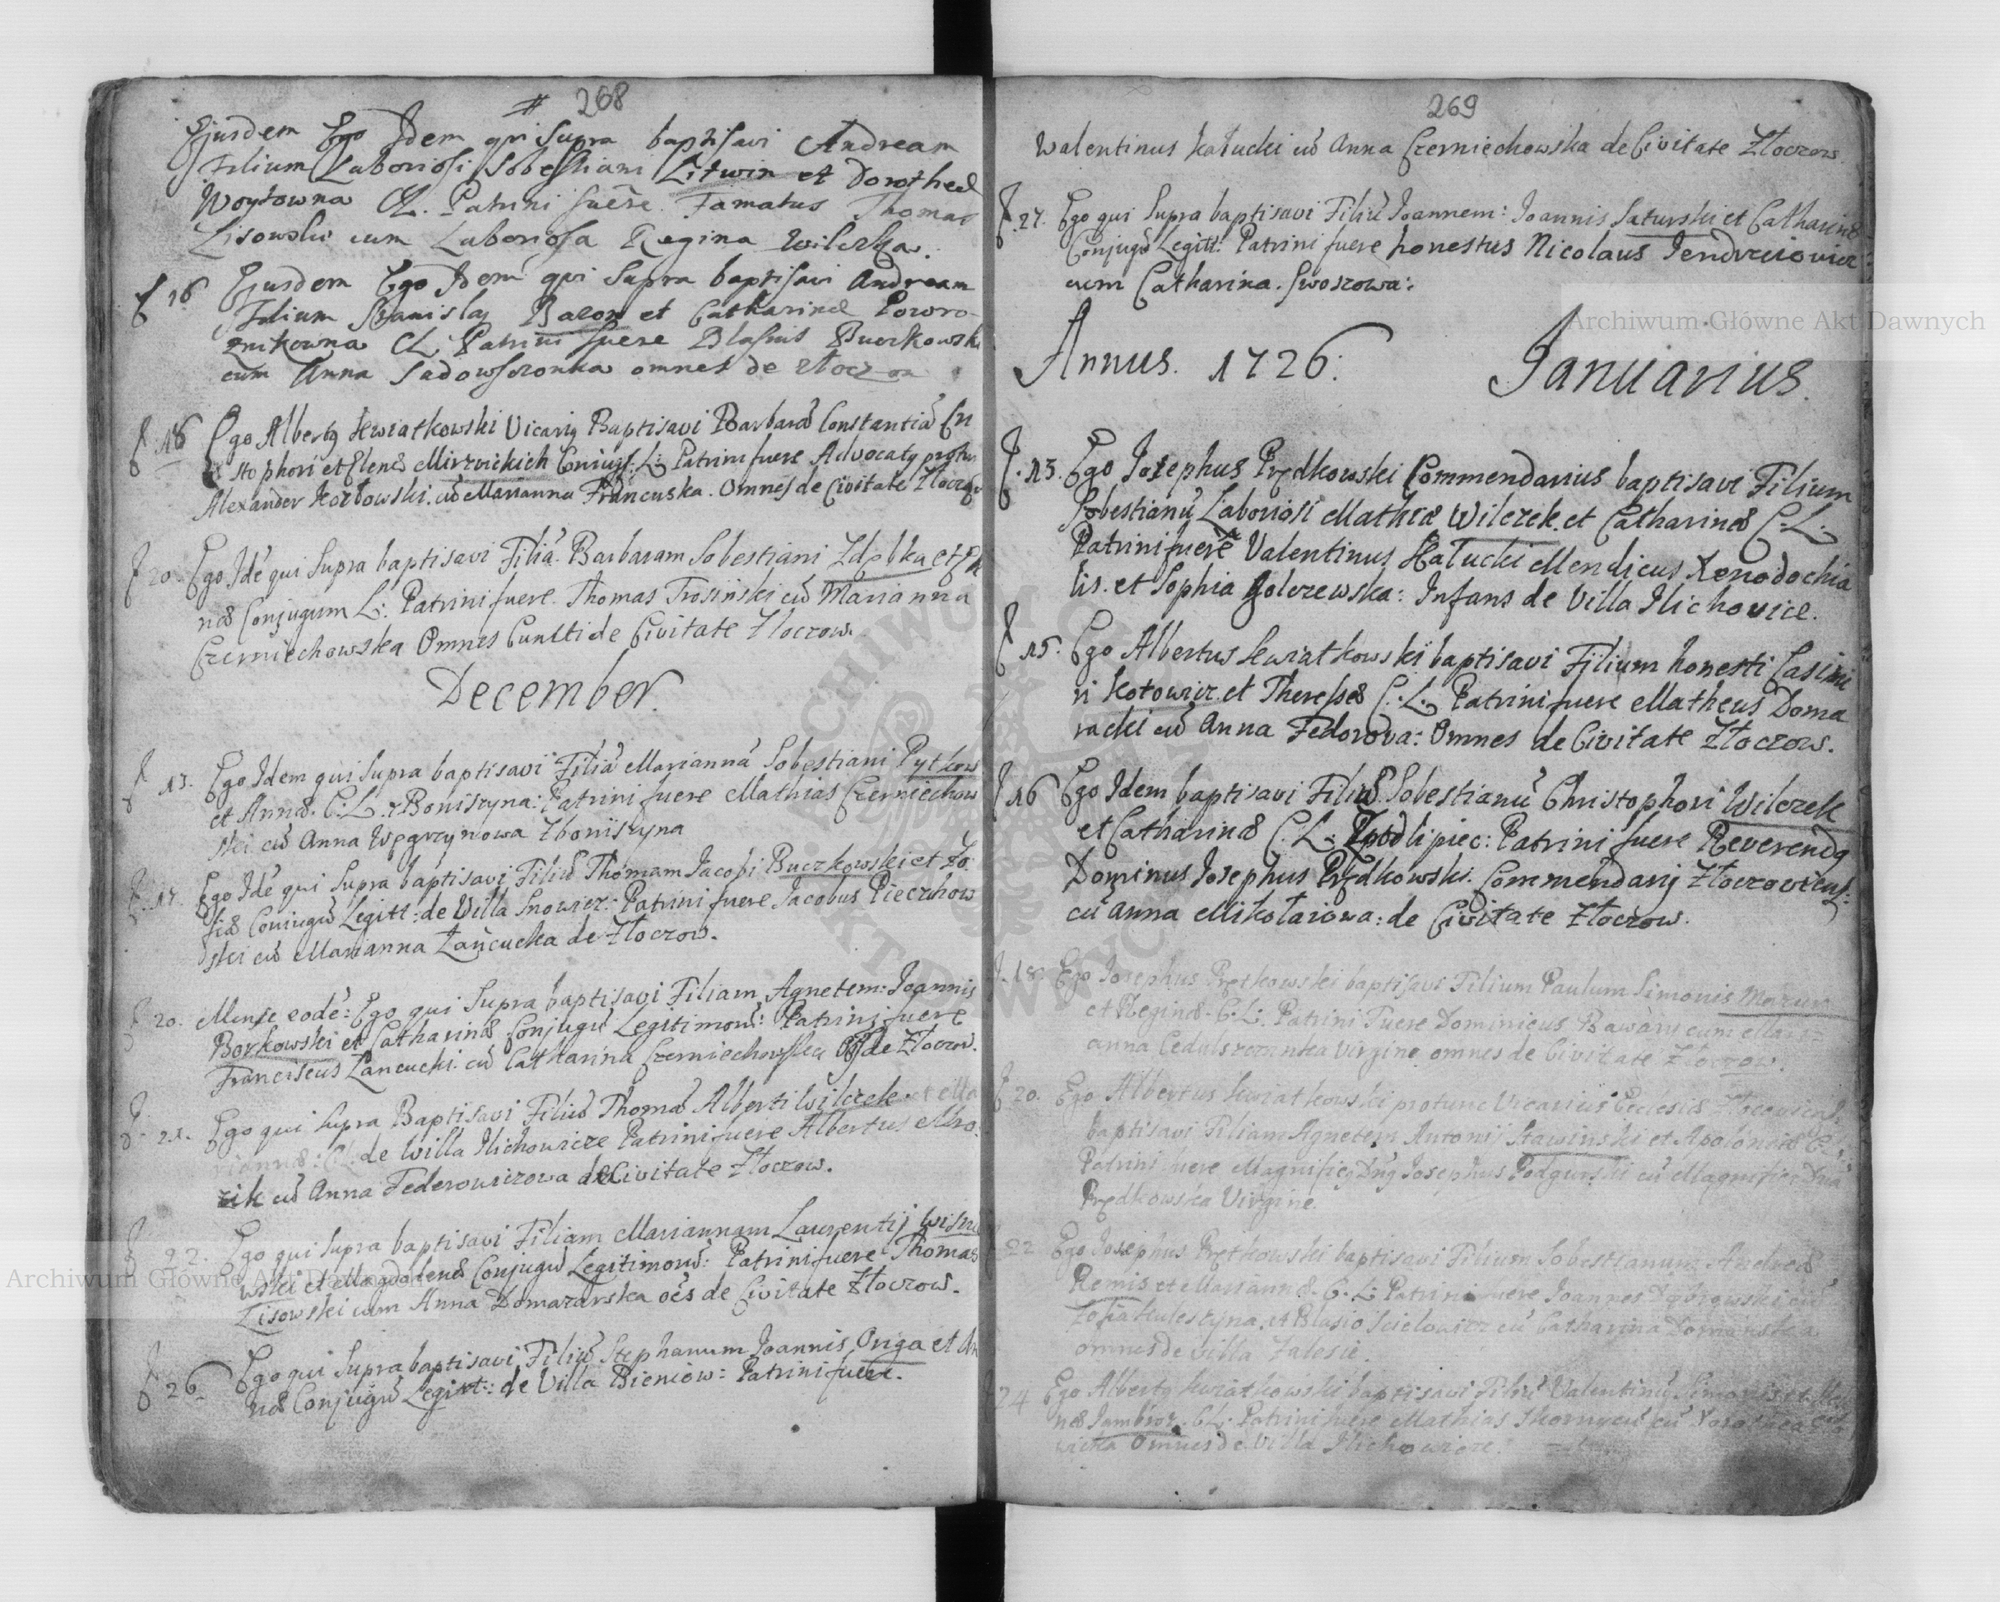 # 268
Ejusdem Ego Idem qui supra baptisavi Andream
Filium Laboriosi Sobestiani Litwin et Dorotheæ
Woytowna CL. Patrini fuēre Famatus Thomas
Lisowski cum Laboriosa Regina Wilczka.
16 Ejusdem Ego Idem qui supra baptisavi Andream
Filium Stanislai Bacon et Catharinæ Powro-
znikowna CL. Patrini fuere Blasius Buczkowski
cum Anna Sadowszonka omnes de Złoczow
18 Ego Albertg Kwiatkowski Vicarig Baptisavi Barbarā Constantiā Cri
stophori et Elenæ Mirzwickich Coniug: L: Patrini fuere Advocatg
Alexander Kozłowski. cū Marianna Francuska. Omnes de Civitate Złoczow
20. Ego Idē qui supra baptisavi Filiā Barbaram Sobestiani Zdębka et
næ Conjugum L: Patrini fuere. Thomas Trosinski cū Marianna
Czerniechowska Omnes Cuncti de Civitate Złoczow.
December.
13. Ego Idem qui supra baptisavi Filiā Mariannā Sobestiani Pytkow
et Annæ. C: L. z Boniszyna: Patrini fuere Mathias Czerniechow
ski cū Anna Węgrzynowa Zboniszyna
17. Ego Idē qui supra baptisavi Filiū Thomam Jacobi Buczkowski et Zo
fiæ Coniugū Legitt: de Villa Snowicz: Patrini fuere Jacobus Pieczkow
ski cū Marianna Łancucka de Złoczow.
20. Mense eodē: Ego qui supra baptisavi Filiam Agnetem: Joannis
Borkowski et Catharinæ Conjugū Legitimorū: Patrini fuere
Franciscus Łancucki cū Catharina Czerniechowska de Złoczow.
21. Ego qui supra Baptisavi Filiū Thomā Alberti Wilczek et Ma
riannæ: C: L: de Willa Ilichowicze Patrini fuere Albertus Mro
zik cū Anna Federowiczowa de Civitate Złoczow.
22. Ego qui supra baptisavi Filiam Mariannam Laurentij Wisni
wski et Magdalenæ Conjugū Legitimorū: Patrini fuere Thomas
Lisowski cum Anna Domazarska oēs de Civitate Złoczow.
26. Ego qui supra baptisavi Filiū Stephanum Joannis Onga et An
næ Conjugū Legitt: de Villa Bieniow: Patrini fuere.
269
Walentinus Kałucki cū Anna Czerniechowska de Civitate Złoczow.
27. Ego qui supra baptisavi Filiū Joannem: Joannis Saturski et Catharinæ
Conjugū Legitt: Patrini fuere honestus Nicolaus Jendrzeiowicz
cum Catharina. Swoszowa:
Annus. 1726: Januarius.
13. Ego Josephus Prędkowski Commendarius baptisavi Filium
Sobestianū Laboriosi Mathiæ Wilczek. et Catharinæ C: L:
Patrini fuere Valentinus Hałucki Mendicus Xenodochia
lis. et Sophia Golczewska: Infans de Villa Ilichovice.
15. Ego Albertus Kwiatkowski baptisavi Filium honesti Casimi
ri Kotowicz. et Theresæ C: L. Patrini fuere Matheus Doma
racki cū Anna Fedorova: Omnes de Civitate Złoczow.
16 Ego Idem baptisavi Filiū Sobestianū Christophori Wilczek
et Catharinæ C. L: Zpodlipiec: Patrini fuere Reverendg
Dominus Josephus Prędkowski. Commendarij Złoczoviens:
cū Anna Mikołaiowa: de Civitate Złoczow.
18. Ego Josephus Prętkowski baptisavi Filium Paulum Simonis Mazur
et Reginæ. C: L: Patrini Fuere Dominicus Bawary cum Mari
anna Cedulszczanka Virgine omnes de Civitate Złoczow.
20. Ego Albertus Kwiatkowski protunc Vicarius Ecclesiæ
baptisavi Filiam Agnetem Antonij Stawinski et Apoloniæ C: L.
Patrini fuere Magnificg Dng Josephus Podgurski cū Magnifica Dna
Prędkowska Virgine.
22. Ego Josephus Prętkowski baptisavi Filium Sobestianum Andreæ
Remis et Mariannæ. C. L: Patrini fuere Joannes Dąbrowski cū
Zofia Kuleszyna. et Blasio cū Catharina Domanska
omnes de villa Zalesie.
24 Ego Albertg Kwiatkowski baptisavi Filiū Valentinū Simonis et
næ Jambroz. CL: Patrini fuere Mathias cū
Omnes de Villa Ilichowicze.
Archiwum Główne Akt Dawnych
Archiwum Główne Akt Dawnych